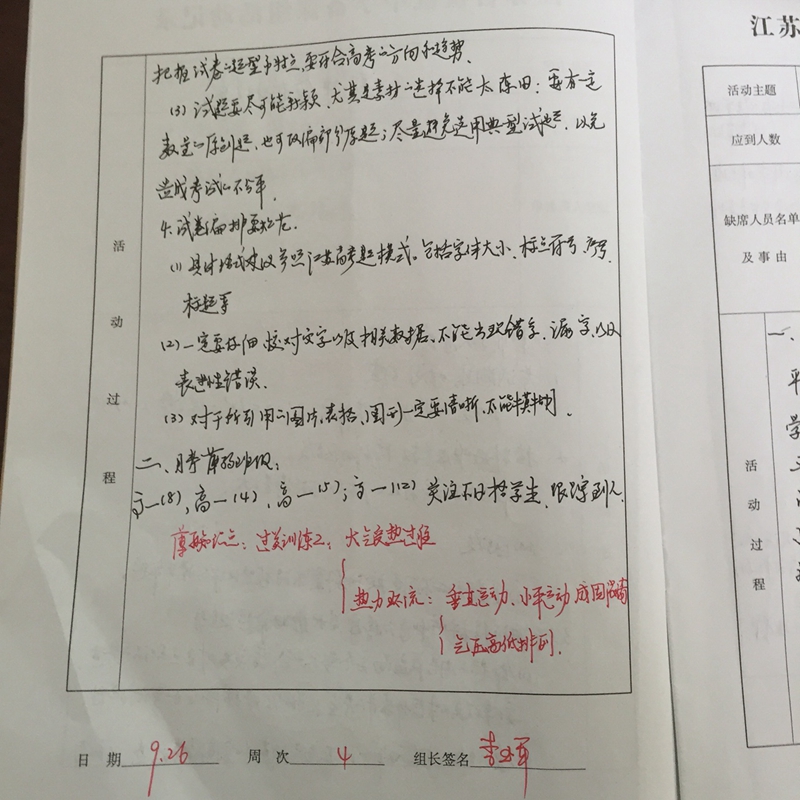 把握试卷的题型与特点,要符合高考的方向和趋势.
(3) 试题要尽可能新颖,尤其是素材的选择不能太陈旧:要有一定
数量的原创题,也可改编部分原题;尽量避免选用典型试题,以免
造成考试的不公平.
4.试卷编排要规范.
(1) 具体格式建议参照江苏高考题模式。包括字体大小、标点符号、序号、
标题等
(2) 一定要仔细校对文字以及相关数据,不能出现错字、漏字,以及
表述性错误.
(3) 对于所引用的图片、表格、图形一定要清晰,不能模糊.
二、薄弱班级:
高一(8),高一(4),高一(5);高一(12) 关注不及格学生,跟踪到人.
薄弱知识点:过关训练2,大气受热过程
热力环流:垂直运动、水平运动 成因
气压高低排列.
活
动
过
程
日 期 9.26 周 次 4 组长签名 李
江苏
活动主题
应到人数
缺席人员名单
及事由
活
动
过
程
一、
平
学